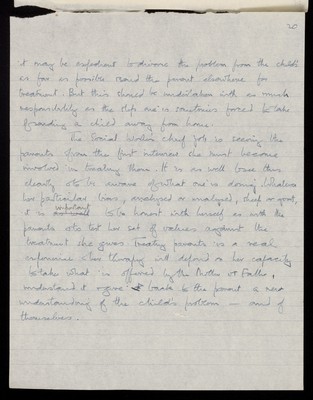 20
it may be expedient to divorce the problem from the child
as far as possible & send the parent elsewhere for
treatment. But this should be undertaken with as much
responsibility as the step one is sometimes forced to take
of sending a child away from home.
The Social Worker's chief job is seeing the
parents & from the first interview she must become
involved in treating them. It is as well to see this
clearly & to be aware of what one is doing. Whatever
her particular bias, analysed or unanalysed, sheep or goat,
it is important to be honest with herself as with the
parents & to test her set of values against the
treatment she gives. Treating parents is a real
experience & her therapy will depend on her capacity
to take what is offered by the Mother or Father,
understand it & give back to the parent a new
understanding of the child's problem – and of
themselves.